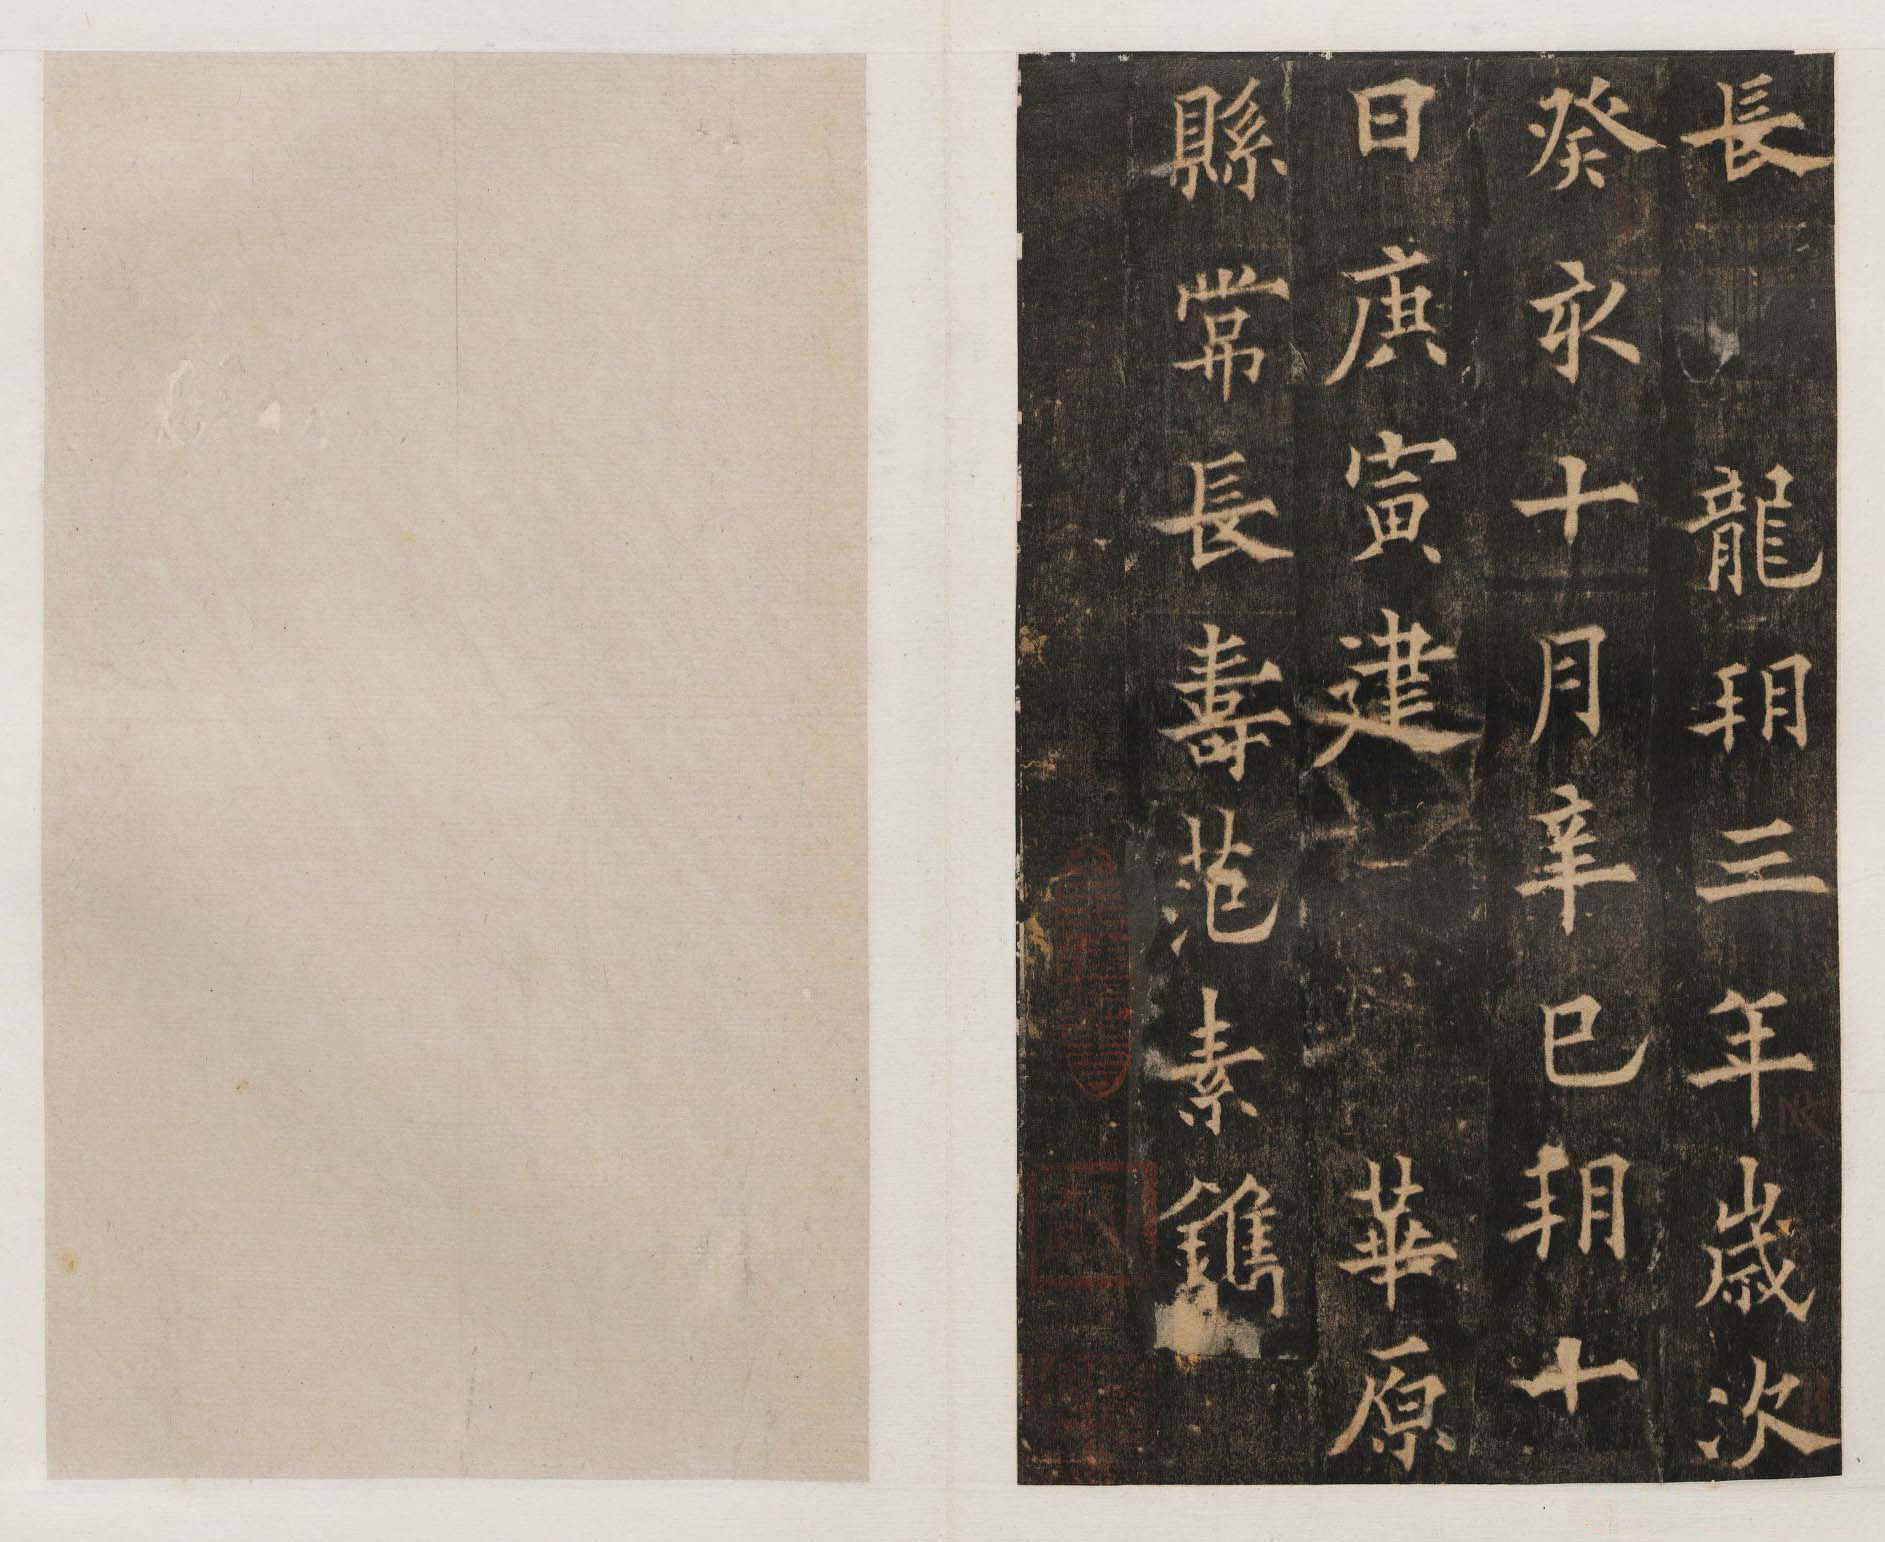 長 龍朔三年歲次
癸亥十月辛巳朔十
日庚寅建 華原
縣常長壽范素鐫